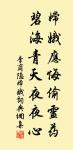 嫦娥應悔偷靈藥
碧海青天夜夜心
李商隱嫦娥詞典網集